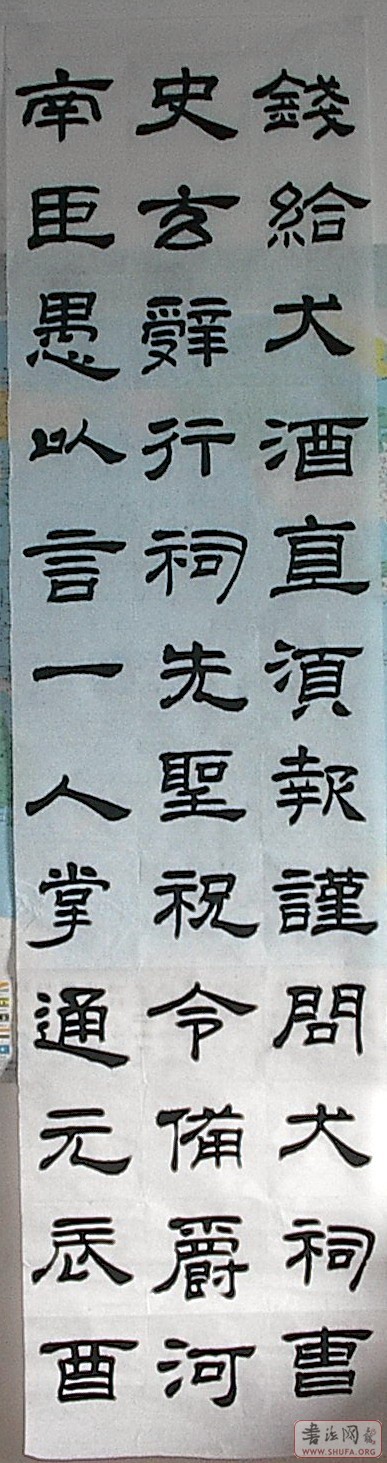 錢給犬酒直須報謹問犬祠曹
史玄辭行祠先聖祝令備爵河
南臣愚以言一人掌通元辰酉
书法网
WWW.SHUFA.ORG